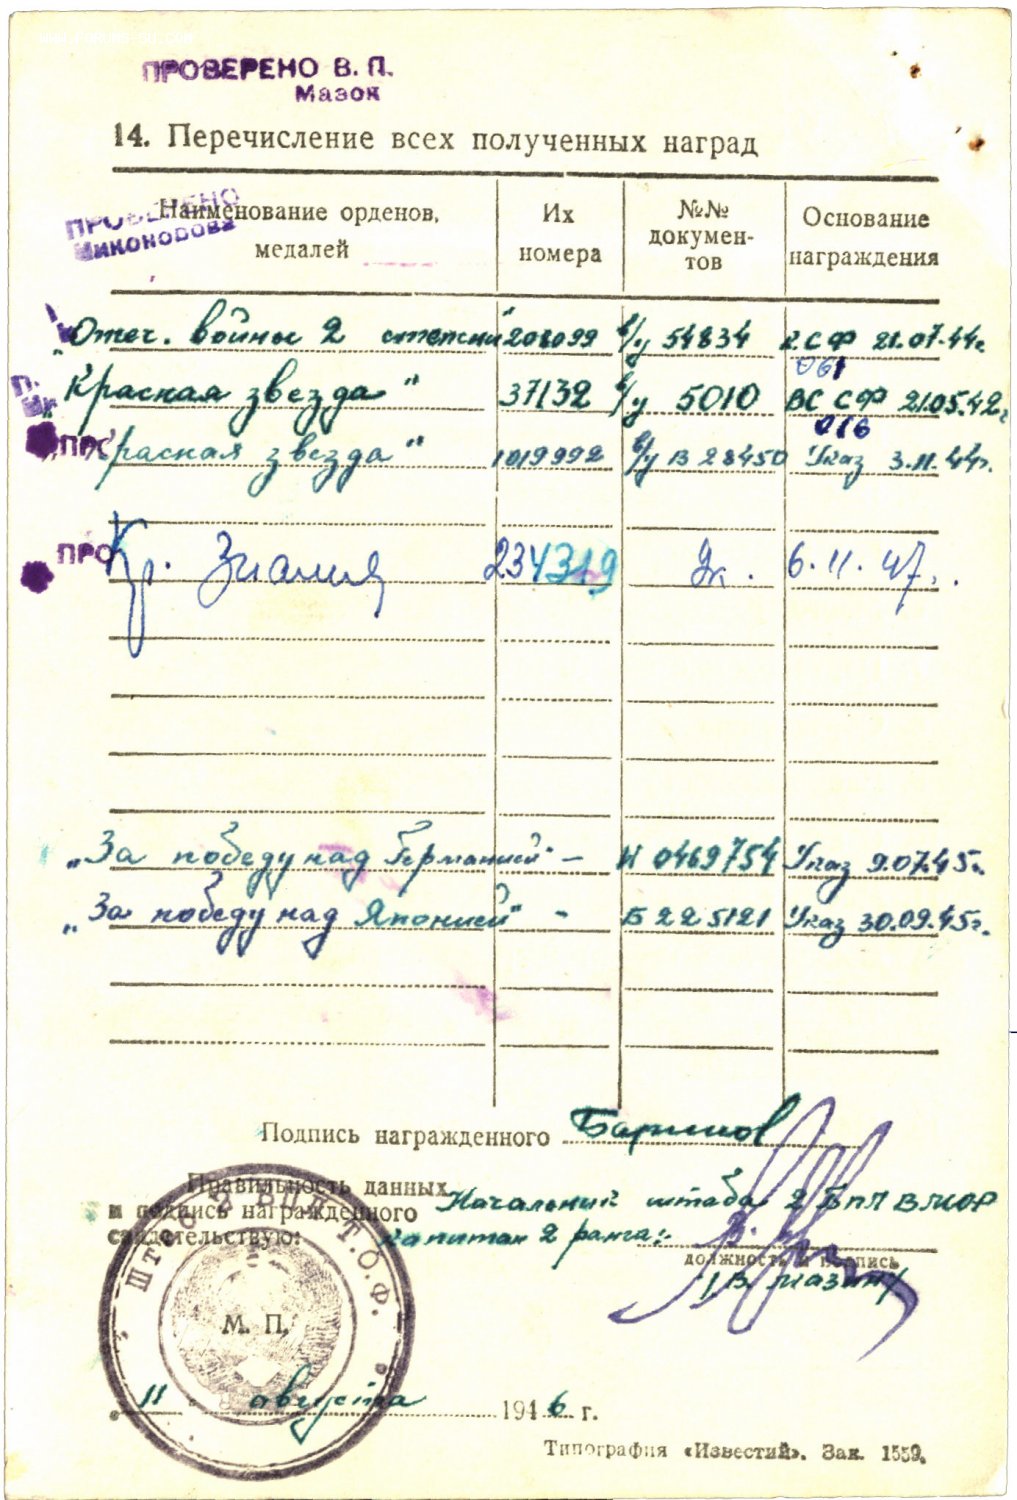 ПРОВЕРЕНО В. П.
Мазок
14. Перечисление всех полученных наград
ПРОВЕРЕНО
Наименование орденов, медалей
Их номера
№№ докумен-тов
Основание награждения
Отеч. войны 2 степени 208099 в/у 54834 КСФ 21.07.44г.
061
"Красная звезда" 37132 в/у 5010 ВС СФ 21.05.42г
016
ПРО
"Красная звезда" 1019992 в/у В 28450 Указ 3.11.44г.
ПРО
Кр. Знамя 234319 Ук. 6.11.47.
"За победу над Германией" – Н 0469754 Указ 9.07.45г.
"За победу над Японией" – Б 225121 Указ 30.09.45г.
Подпись награжденного
Правильность данных
и подпись награжденного
свидетельствую:
Начальник штаба 2 БПЛ ВМОР
капитан 2 ранга:
должность и подпись
Т.О.Ф.
М. П.
"11" августа 1946 г.
Типография «Известий». Зак. 1559.